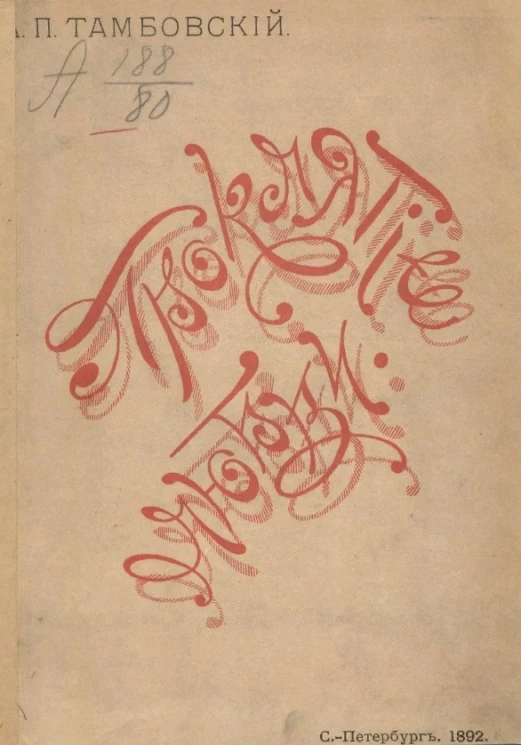 А. П. ТАМБОВСКІЙ.
А 188
80
Проклятіе
любви.
С.-Петербургъ. 1892.